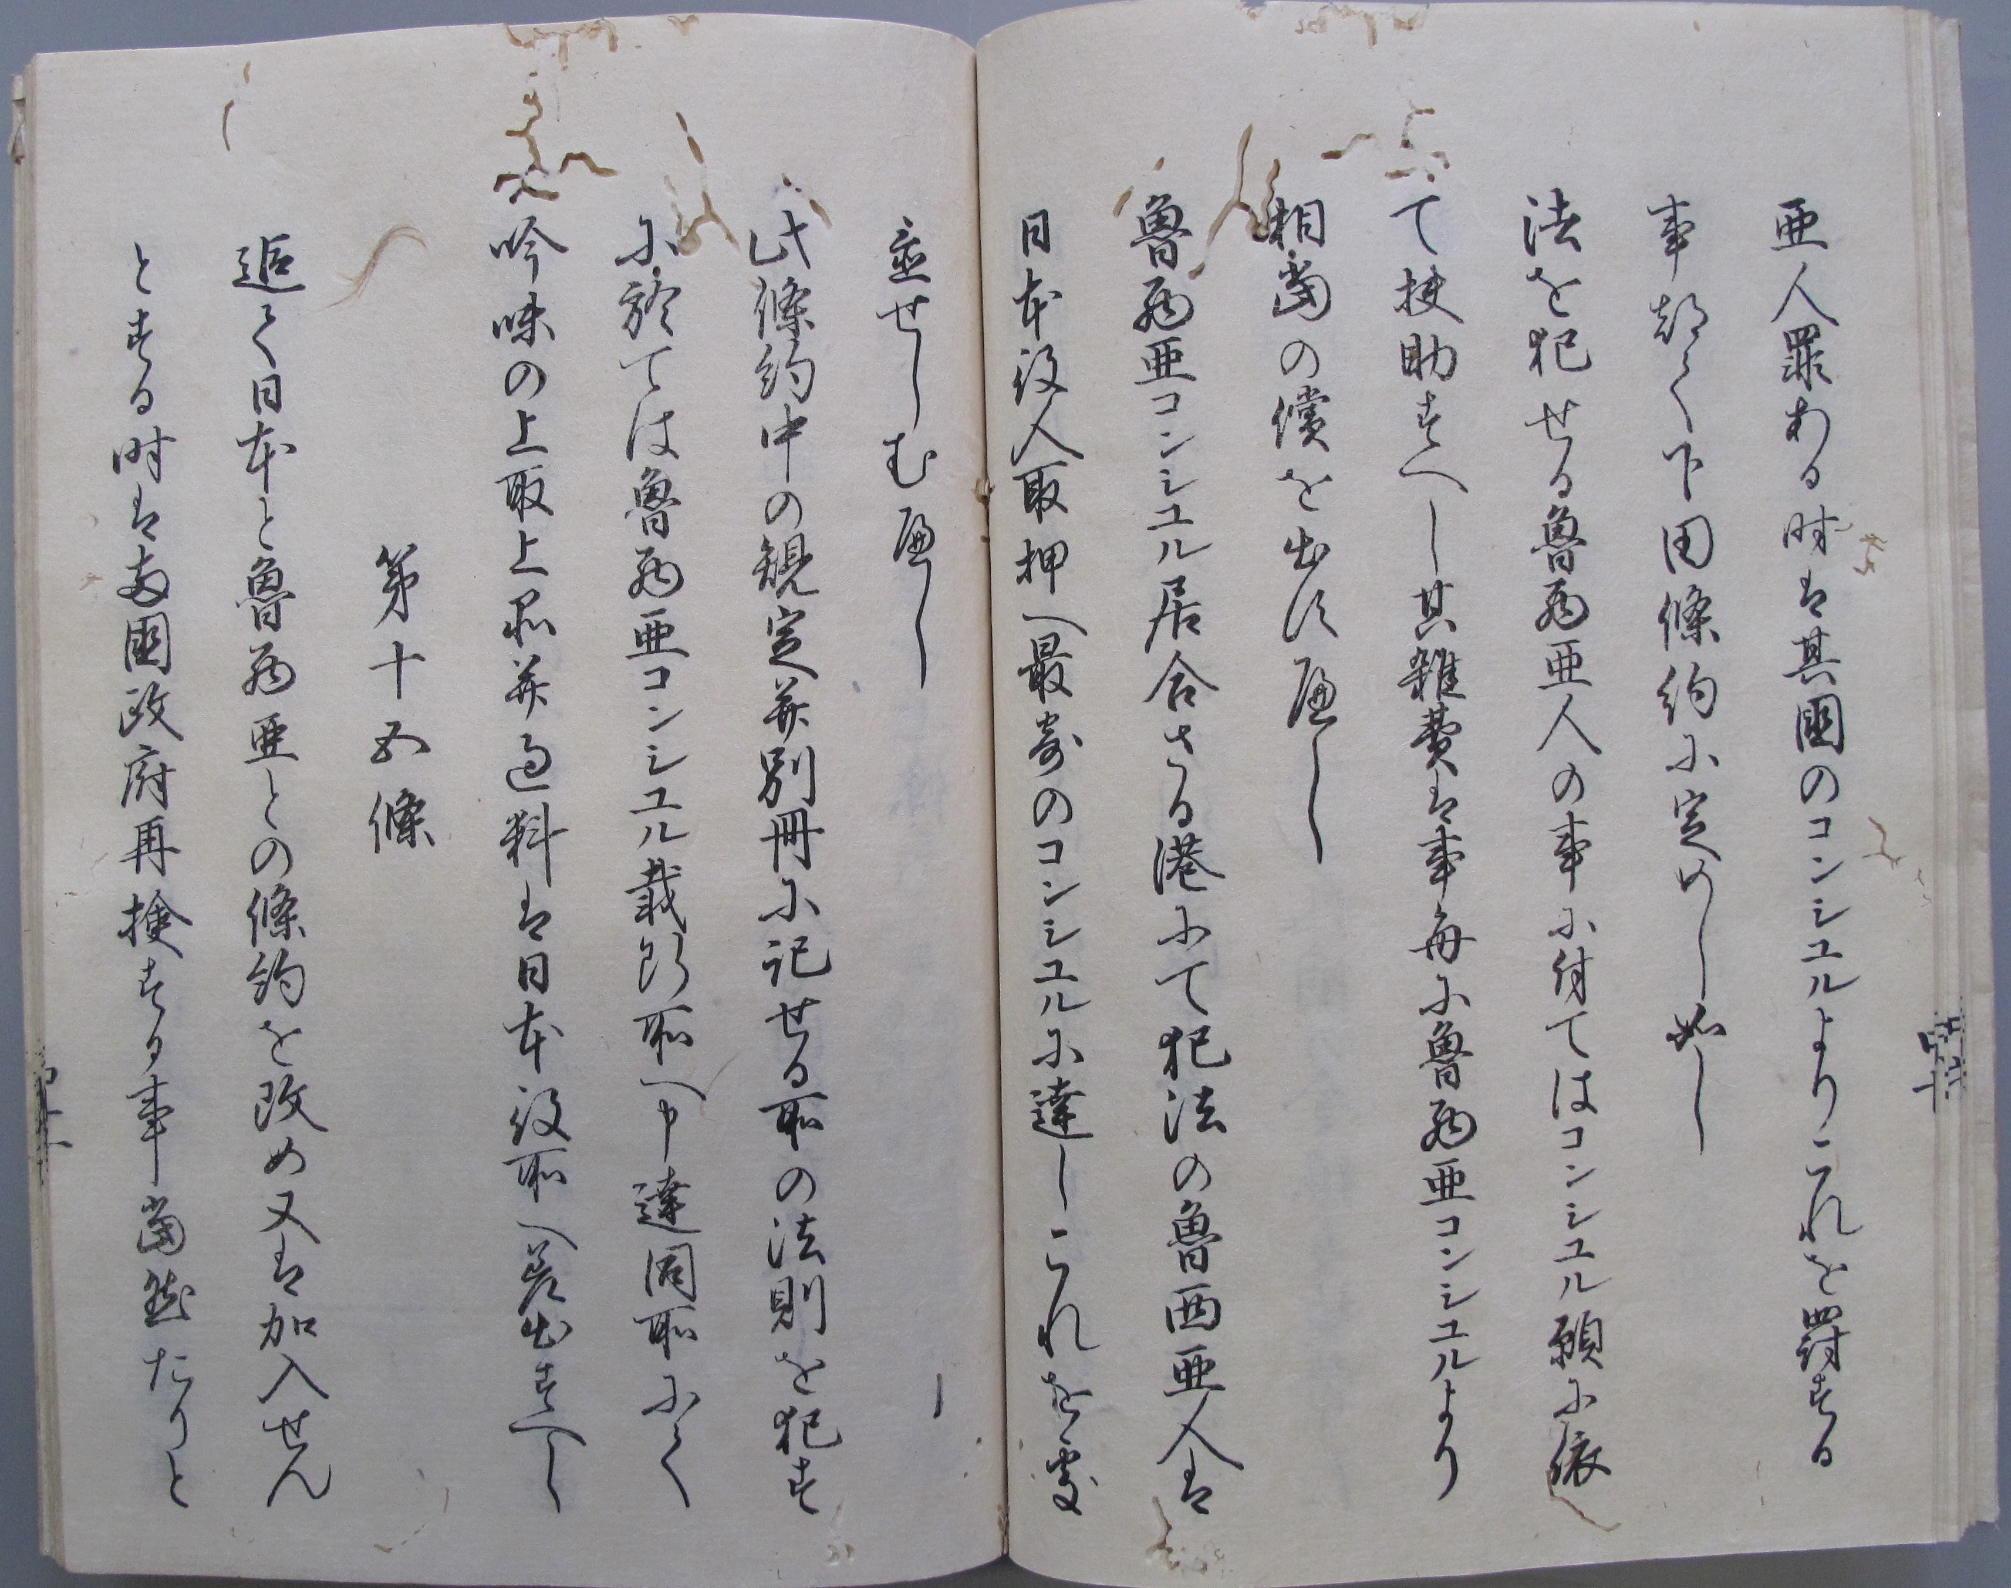 亜人罪ある時は其國のコンシユルよりこれを罰する
事都て下田條約に定めし如し
法を犯せる魯西亜人の事に付てはコンシユル願に依
て扶助すへし其雑費は事毎に魯西亜コンシユルより
相當の償を出すへし
魯西亜コンシユル居合さる港にて犯法の魯西亜人は
日本役人取押へ最寄のコンシユルに達しこれを處
置せしむへし
此條約中の規定并別冊に記せる所の法則を犯す
に於ては魯西亜コンシユル裁断所へ申達同所にて
吟味の上取上品并過料は日本役所へ差出すへし
第十五條
追て日本と魯西亜との條約を改め又は加入せん
とする時は両國政府再検する事當然たりと